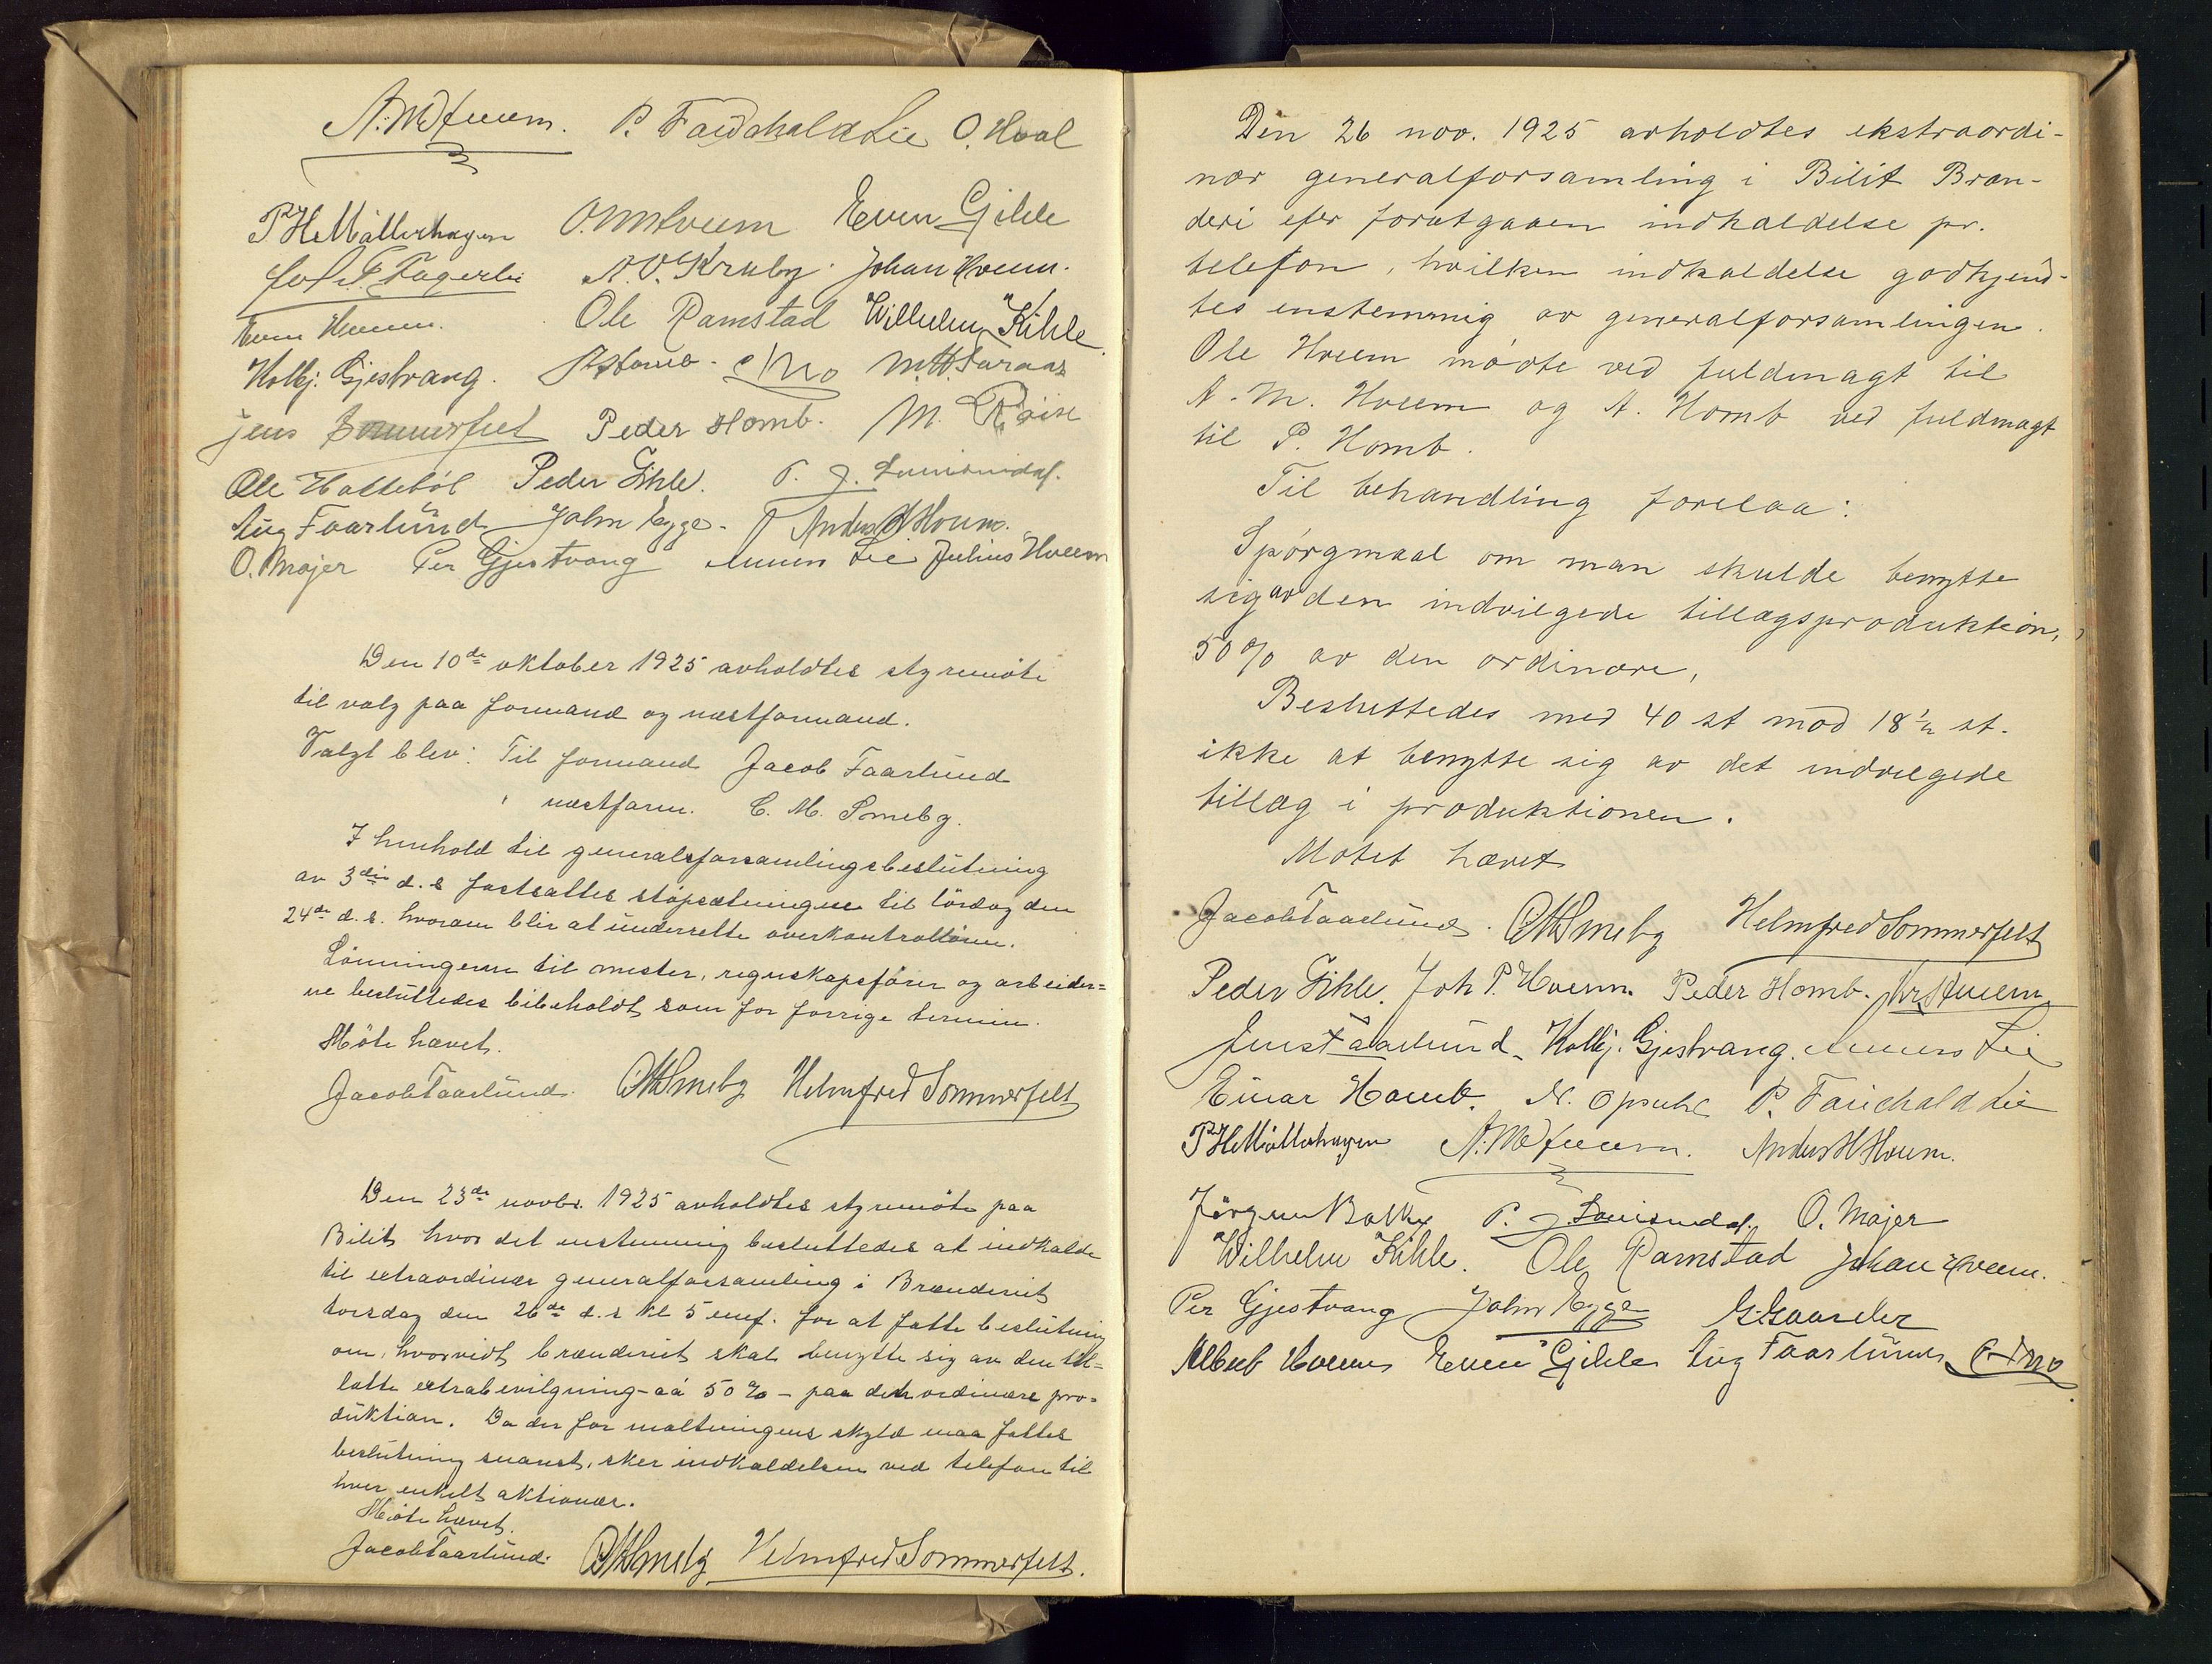 P. Fauchald Lie O. Hval
P H Möllerhagen O. M. Hveem Even Gihle
Fagerli A. O. Kraby. Johan Hveem.
Hveem. Ole Ramstad Wilhelm Kihle.
Kolbj. Gjestvang. M. H. Faraas
Jens Sommerfelt Peder Homb. M. Röise
Ole Hatteböl Peder Gihle. P. J.
Aug Faarlund John Eyge. Anders H Hveem.
O. Majer Per Gjestvang Lie Julius Hveem
Den 10de oktober 1925 avholdtes styremöte
til valg paa formand og næstformand.
Valgt blev: Til formand Jacob Faarlund
" næstform. C. M. Smeby.
I henhold til generalforsamlingsbeslutning
av 3die d.s fastsattes stöpsætningen til lördag den
24de d.s. hvorom blir at underrette overkontrollören.
Lönningerne til mester, regnskapsförer og arbeider=
ne besluttedes bibeholdt som for forrige termin.
Möte hævet.
Jacob Faarlund. CM Smeby Helmfred Sommerfelt
Den 23de novbr. 1925 avholdtes styremöte paa
Bilit hvor det enstemmig besluttedes at indkalde
til extraordinær generalforsamling i Brænderiet
torsdag den 26de d.s kl 5 emf. for at fatte beslutning
om, hvorvidt brænderiet skal benytte sig av den til=
latte extrabevilgning - aá 50% - paa den ordinære pro=
duktion. Da der for maltningens skyld maa fattes
beslutning snarest, sker indkaldelsen ved telefon til
hver enkelt aktionær.
Möte hævet.
Jacob Faarlund. CM Smeby Helmfred Sommerfelt.
Den 26 nov. 1925 avholdtes ekstraordi-
nær generalforsamling i Bilit Bræn-
deri efter forutgaaen indkaldelse pr.
telefon, hvilken indkaldelse godkjend-
tes enstemmig av generalforsamlingen.
Ole Hveem mödte ved fuldmagt til
A. M. Hveem og A. Homb ved fuldmagt
til P. Homb.
Til behandling forelaa:
Spörgmaal om man skulde benytte
sig av den indvilgede tillægsproduktion,
50% av den ordinære,
Besluttedes med 40 st mod 18½ st.
ikke at benytte sig av det indvilgede
tillæg i produktionen.
Mötet hævet
Jacob Faarlund. CM Smeby Helmfred Sommerfelt
Peder Gihle. Joh P. Hveem. Peder Homb. Hveem
Jens Faarlund. Kolbj. Gjestvang. Lie
Einar Homb. N. Opsahl P. Fauchald Lie
P H Möllerhagen A. M. Hveem. Anders H Hveem.
Jörgen Balke P. J. O. Majer
Wilhelm Kihle. Ole Ramstad Johan Hveem.
Per Gjestvang John Eyge G. Gaarder
Albert Hveem Even Gihle Aug Faarlund